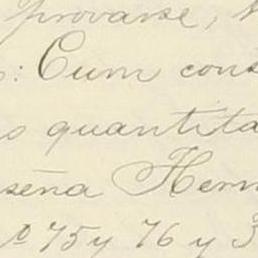 provarse,
: Cum cons
s quantita
seña Hern
º 75 y 76 y 3